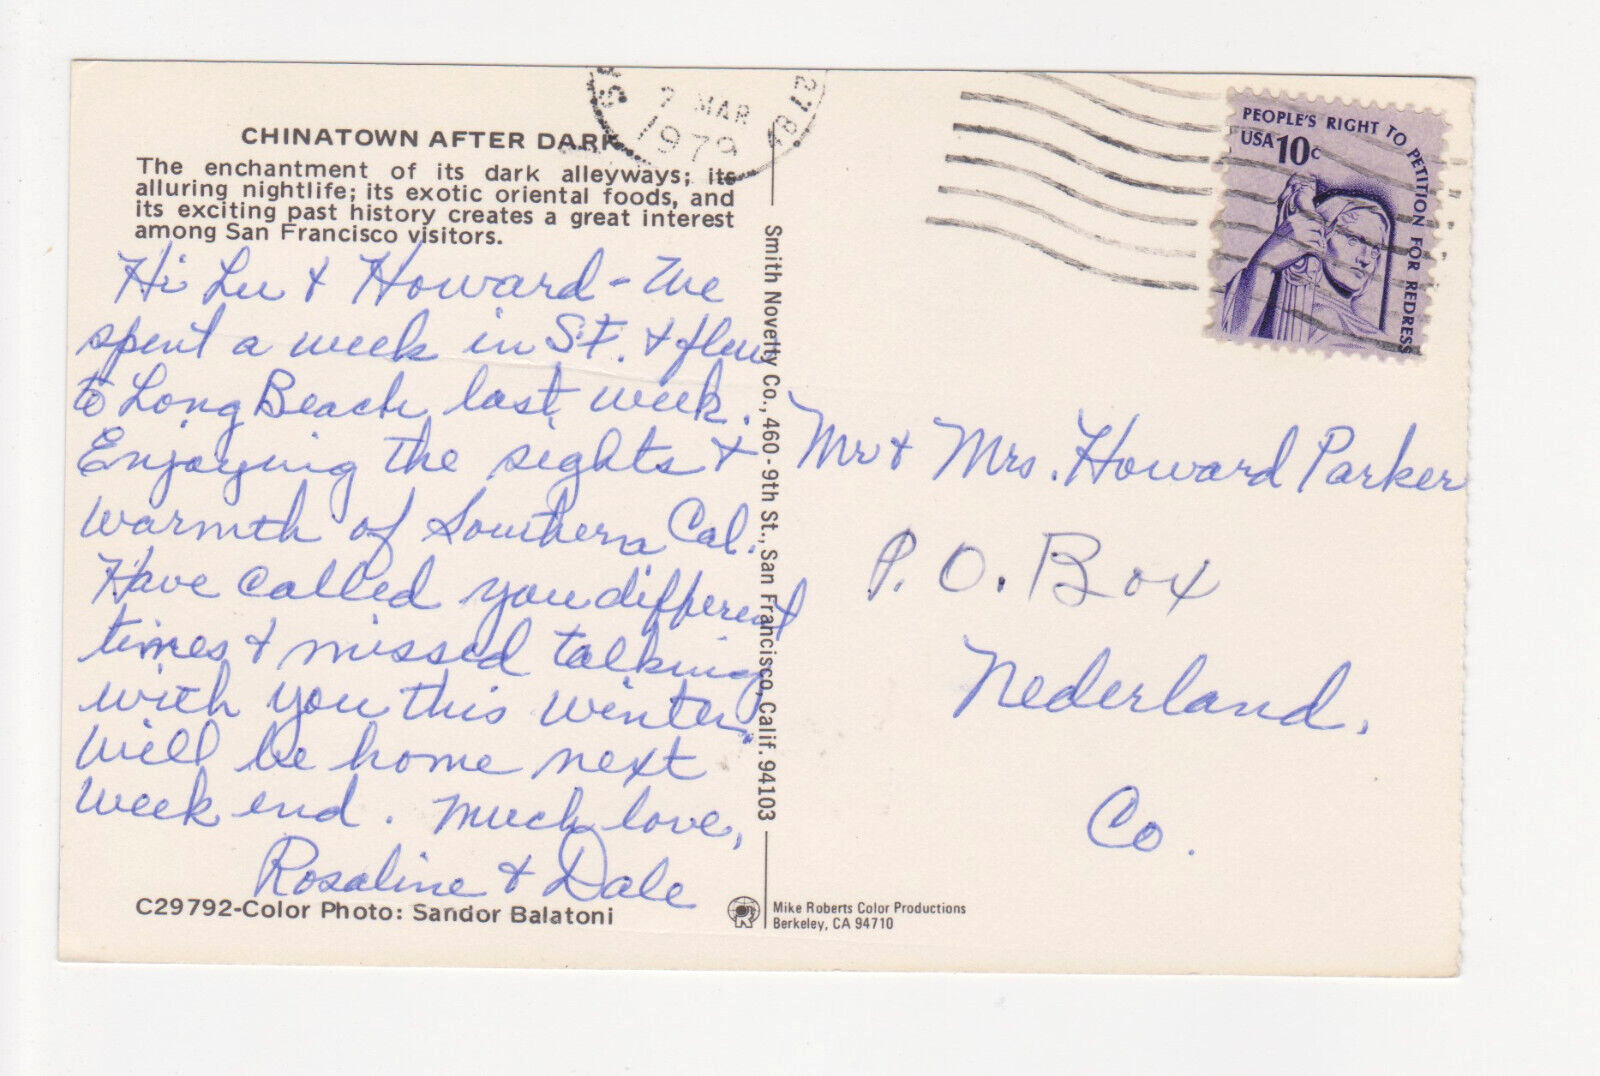 CHINATOWN AFTER DARK
The enchantment of its dark alleyways; its
alluring nightlife; its exotic oriental foods, and
its exciting past history creates a great interest
among San Francisco visitors.
Hi Lu & Howard - We
spent a week in S.F. & flew
to Long Beach last week.
Enjoying the sights &
warmth of Southern Cal.
Have called you different
times & missed talking
with you this winter.
Will be home next
week end. Much love,
Rosaline & Dale
C29792-Color Photo: Sandor Balatoni
Smith Novelty Co., 460 - 9th St., San Francisco, Calif. 94103
Mike Roberts Color Productions
Berkeley, CA 94710
7 MAR
1979
PEOPLE'S RIGHT TO PETITION FOR REDRESS
USA 10c
Mr & Mrs. Howard Parker
P.O. Box
Nederland,
Co.